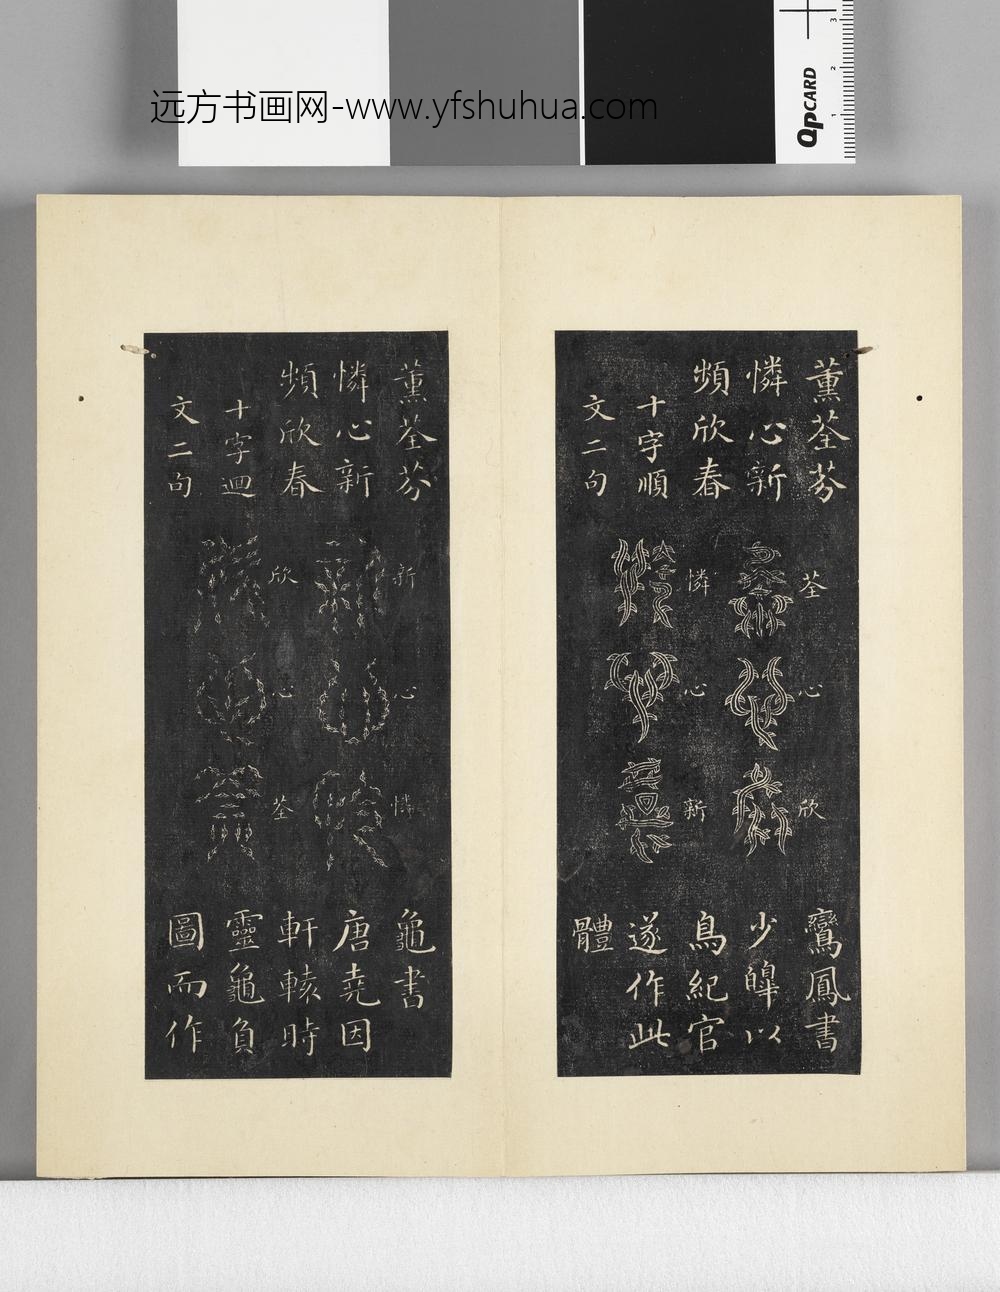 远方书画网-www.yfshuhua.com
QPCARD
1
2
3
薰荃芬
憐心新
頻欣春
十字順
文二句
荃
心
欣
憐
心
新
鸞鳳書
少皞以
鳥紀官
遂作此
體
薰荃芬
憐心新
頻欣春
十字迴
文二句
新
心
憐
欣
心
荃
龜書
唐堯因
軒轅時
靈龜負
圖而作